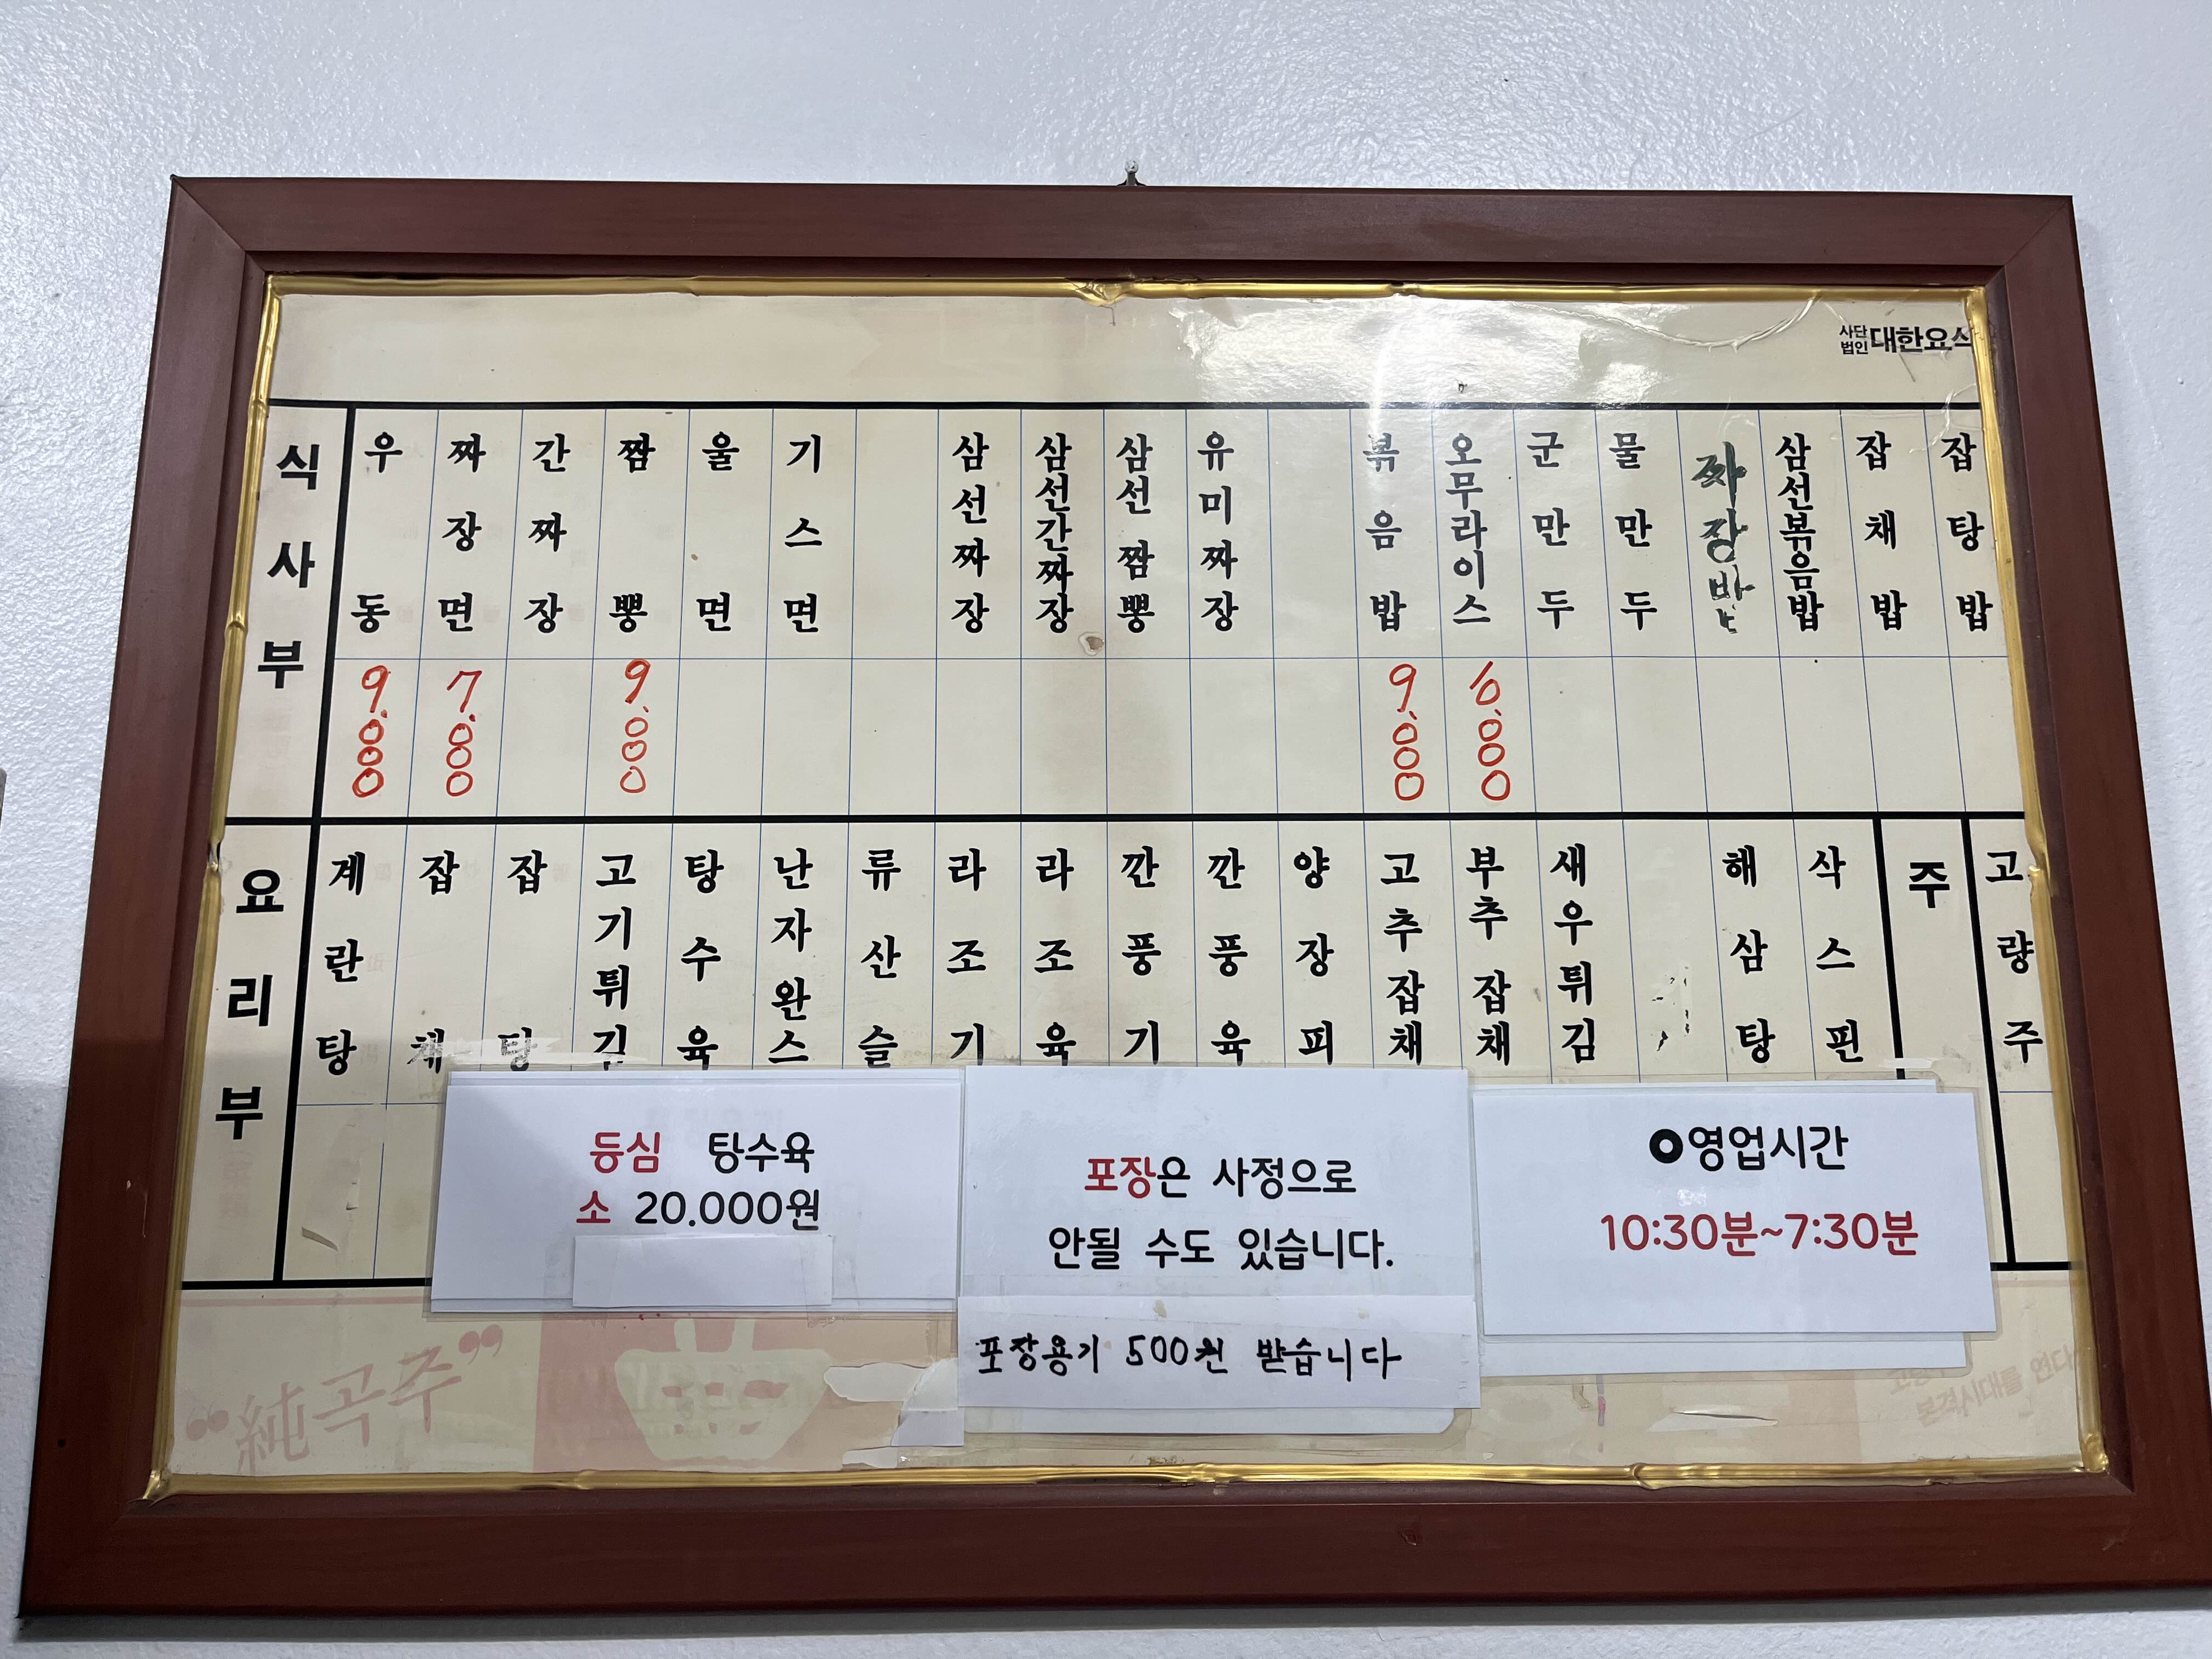 사단
법인 대한요식
식사부
우동 9.000
짜장면 7.000
간짜장
짬뽕 9.000
울면
기스면
삼선짜장
삼선간짜장
삼선짬뽕
유미짜장
볶음밥 9.000
오무라이스 10.000
군만두
물만두
짜장밥
삼선볶음밥
잡채밥
잡탕밥
요리부
계란탕
잡채
잡탕
고기튀김
탕수육
난자완스
류산슬
라조기
라조육
깐풍기
깐풍육
양장피
고추잡채
부추잡채
새우튀김
해삼탕
삭스핀
주
고량주
등심 탕수육
소 20.000원
포장은 사정으로
안될 수도 있습니다.
포장용기 500원 받습니다
영업시간
10:30분~7:30분
“純곡주”
본격시대를 연다